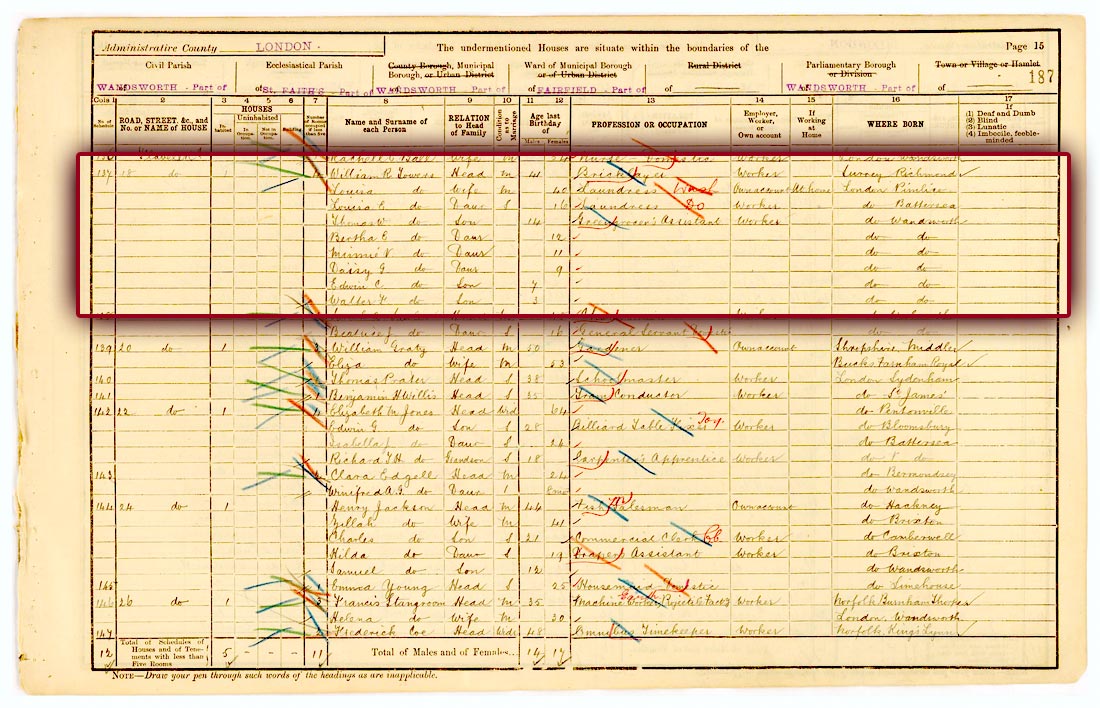 Administrative County LONDON. The undermentioned Houses are situate within the boundaries of the Page 15
Civil Parish Ecclesiastical Parish County Borough, Municipal Borough, or Urban District Ward of Municipal Borough or of Urban District Rural District Parliamentary Borough or Division Town or Village or Hamlet
187
WANDSWORTH - Part of of St. FAITH'S - Part of of WANDSWORTH - Part of of FAIRFIELD - Part of of of WANDSWORTH - Part of of
Cols 1 2 3 4 5 6 7 8 9 10 11 12 13 14 15 16 17
No. of Schedule ROAD, STREET, &c., and No. or NAME of HOUSE HOUSES Inhabited Uninhabited In Occupation Not in Occupation Building Number of Rooms occupied if less than five Name and Surname of each Person RELATION to Head of Family Condition as to Marriage Age last Birthday of Males Females PROFESSION OR OCCUPATION Employer, Worker, or Own account If Working at Home WHERE BORN If (1) Deaf and Dumb (2) Blind (3) Lunatic (4) Imbecile, feeble-minded
Ball Wife M 24 Nurse - Domestic Worker London Wandsworth
137 18 do 1 William R Towers Head M 41 Bricklayer Worker Surrey Richmond
Louisa do Wife M 40 Laundress Wash Own account At home London Pimlico
Louisa E do Daur S 16 Laundress Do Worker do Battersea
Thomas W do Son 14 Greengrocer's Assistant Worker do Wandsworth
Bertha E do Daur 12 do do
Minnie V do Daur 11 do do
Daisy G do Daur 9 do do
Edwin C do Son 7 do do
Walter F do Son 3 do do
Beatrice J do Daur S 16 General Servant Domestic do do
139 20 do 1 William Graty Head M 50 Gardener Own account Shropshire, Middler
Eliza do Wife 53 Bucks Farnham Royal
140 Thomas Prater Head S 38 Schoolmaster Worker London Sydenham
141 Benjamin H Willis Head S 35 Tram Conductor Worker do St James'
142 22 do 1 Elizabeth M Jones Head Wid 64 do Pentonville
Edwin G do Son S 28 Billiard Table Fixer Worker do Bloomsbury
Isabella J do Daur S 24 do Battersea
Richard T.H. do Grandson S 18 Carpenter's Apprentice Worker do do
143 Clara Edgell Head M 24 do Bermondsey
Winifred A.G. do Daur 8mo do Wandsworth
144 24 do 1 Henry Jackson Head M 44 Fish Salesman Own account do Hackney
Zillah do Wife M 41 do Brixton
Charles do Son S 21 Commercial Clerk Worker do Camberwell
Hilda do Daur S 19 Drapers Assistant Worker do Brixton
Samuel do Son 12 do Wandsworth
145 Emma Young Head S 25 Housemaid - Domestic do Limehouse
146 26 do 1 3 Francis Stangroom Head M 35 Machine Worker Worker Norfolk Burnham Thorpe
Helena do Wife M 30 London, Wandsworth
147 Frederick Coe Head Widr 48 Omnibus Timekeeper Worker Norfolk, King's Lynn
12 Total of Schedules of Houses and of Tenements with less than Five Rooms 5 - - - 11 Total of Males and of Females... 14 17
NOTE—Draw your pen through such words of the headings as are inapplicable.